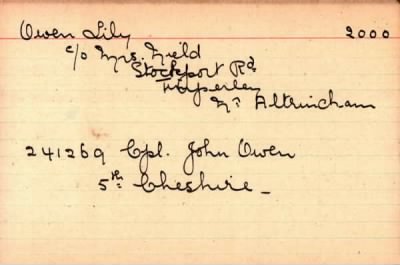 Owen Lily 2000
c/o Mrs. Nield
Stockport Rd
Timperley
Nr Altrincham
241269 Cpl. John Owen
5th Cheshire _